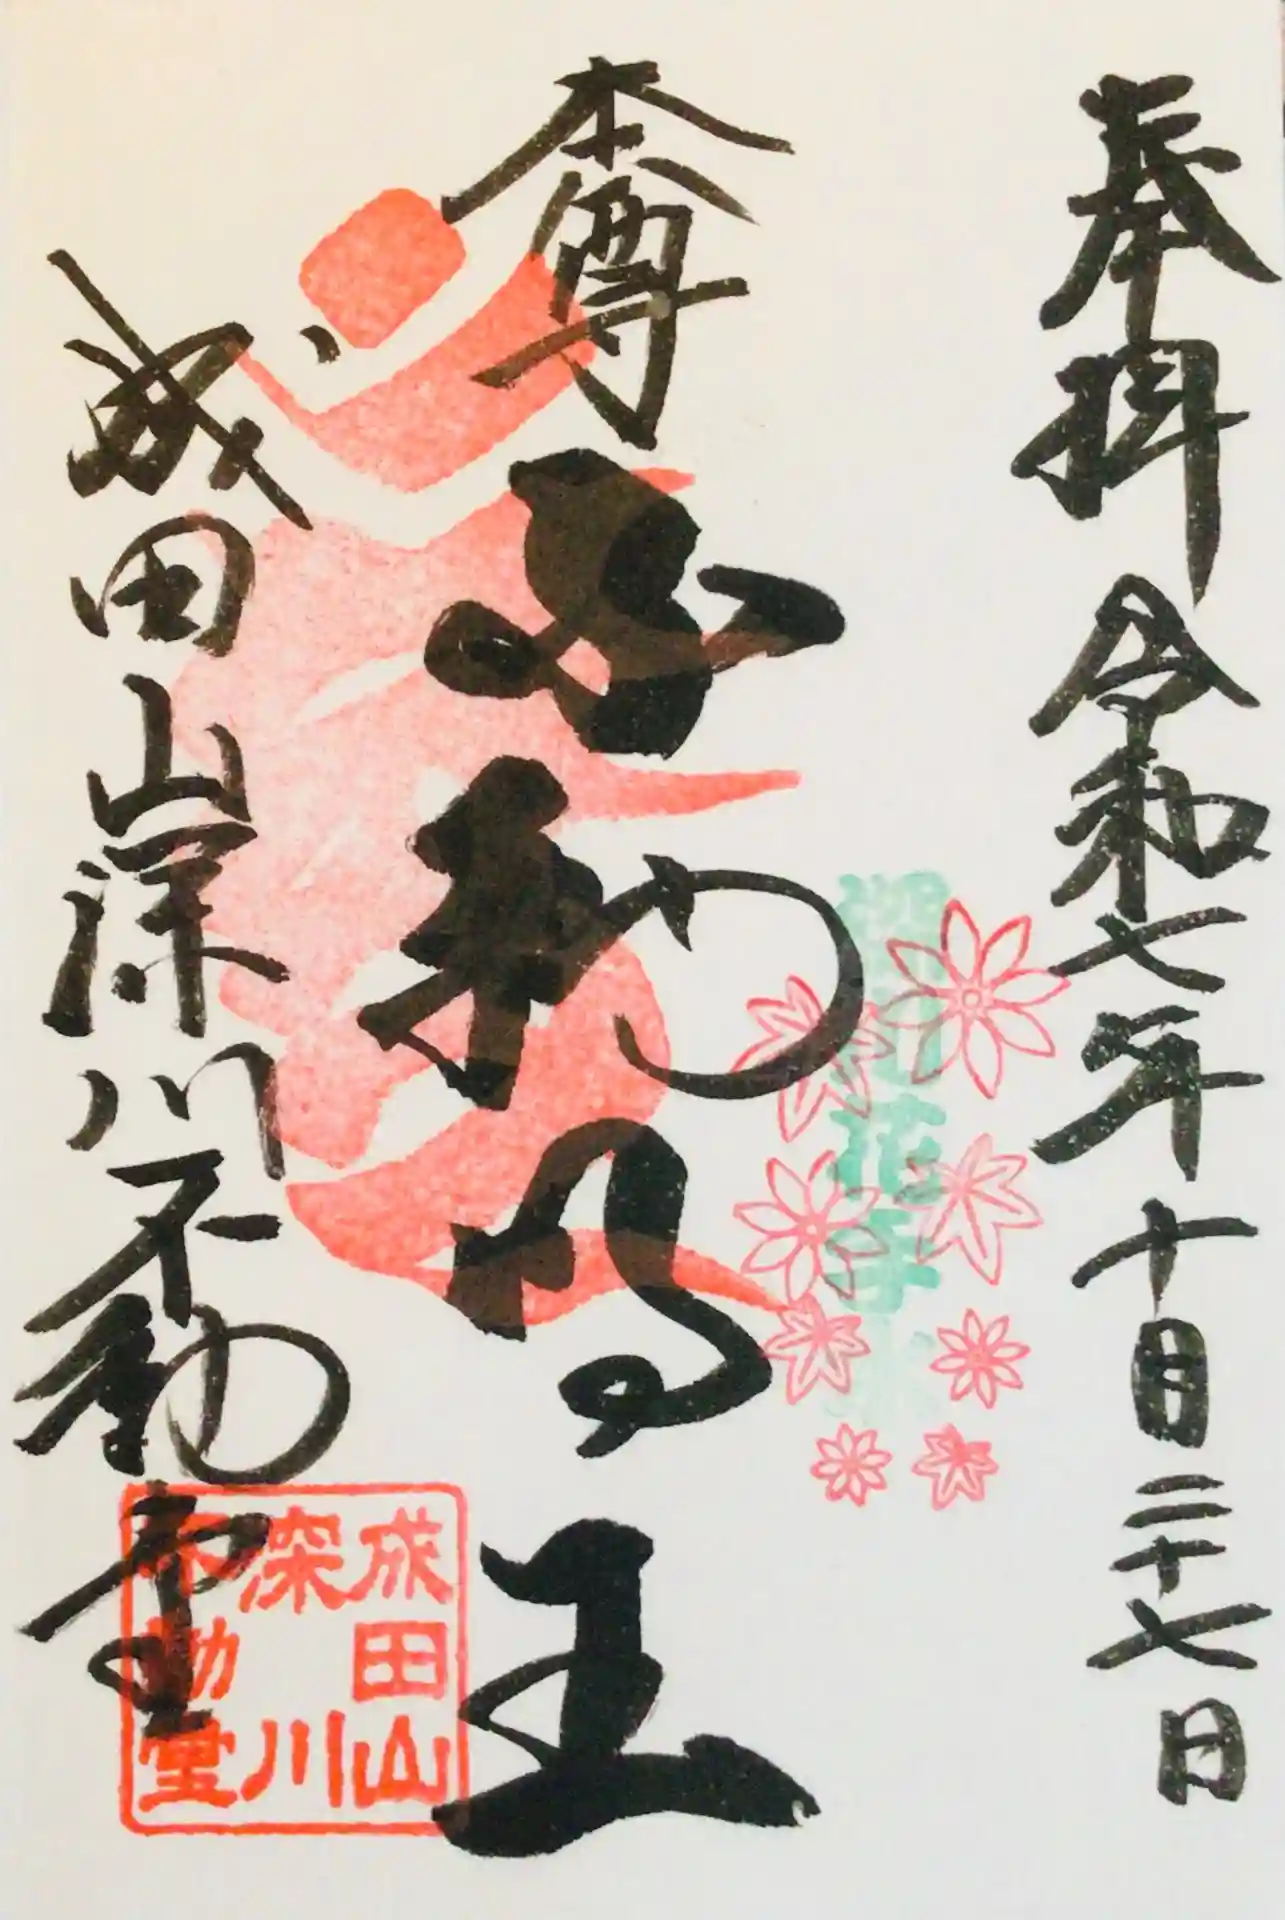 奉拝 令和七年十月二十七日
本尊 不動明王
成田山深川不動堂
成田山
深川
不動堂
花手